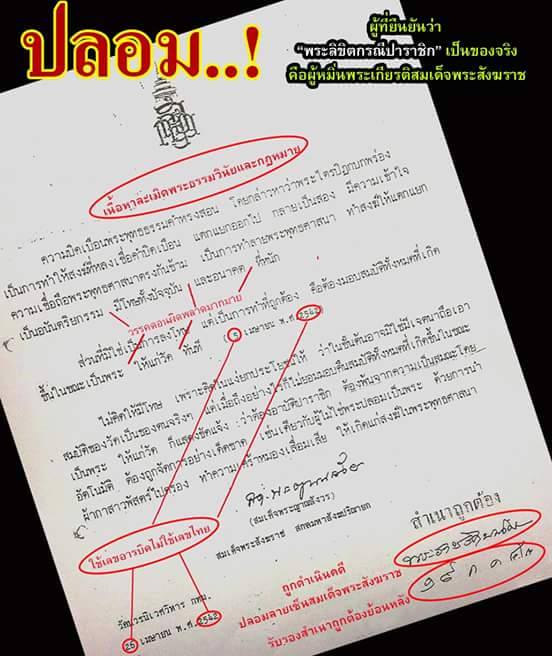 ปลอม..!
ผู้ที่ยืนยันว่า
"พระลิขิตกรณีปาราชิก" เป็นของจริง
คือผู้หมิ่นพระเกียรติสมเด็จพระสังฆราช
เนื้อหาละเมิดพระธรรมวินัยและกฎหมาย
ความบิดเบือนพระพุทธธรรมคำทรงสอน โดยกล่าวหาว่าพระไตรปิฎกบกพร่อง
เป็นการทำให้สงฆ์ที่หลงเชื่อคำบิดเบือน แตกแยกออกไป กลายเป็นสอง มีความเข้าใจ
ความเชื่อถือพระพุทธศาสนาตรงกันข้าม เป็นการทำลายพระพุทธศาสนา ทำสงฆ์ให้แตกแยก
เป็นอนันตริยกรรม มีโทษทั้งปัจจุบัน และอนาคต ที่หนัก
วรรคตอนผิดพลาดมากมาย
(5 เมษายน พ.ศ. 2542)
ส่วนที่มิใช่เป็นการลงโทษ แต่เป็นการทำที่ถูกต้อง คือต้องมอบสมบัติทั้งหมดที่เกิด
ขึ้นในขณะเป็นพระ ให้แก่วัด ทันที
ไม่คิดให้มีโทษ เพราะคิดในแง่ยกประโยชน์ให้ ว่าในชั้นต้นอาจมิใช่มีเจตนาถือเอา
สมบัติของวัดเป็นของตนจริงๆ แต่เมื่อถึงอย่างไรก็ไม่ยอมมอบคืนสมบัติทั้งหมดที่เกิดขึ้นในขณะ
เป็นพระ ให้แก่วัด ก็แสดงชัดแจ้ง ว่าต้องอาบัติปาราชิก ต้องพ้นจากความเป็นสมณะโดย
อัตโนมัติ ต้องถูกจัดการอย่างเด็ดขาด เช่นเดียวกับผู้ไม่ใช่พระปลอมเป็นพระ ด้วยการนำ
ผ้ากาสาวพัสตร์ไปครอง ทำความเศร้าหมองเสื่อมเสีย ให้เกิดแก่สงฆ์ในพระพุทธศาสนา
(สมเด็จพระญาณสังวร)
สมเด็จพระสังฆราช สกลมหาสังฆปริณายก
สำเนาถูกต้อง
ใช้เลขอารบิคไม่ใช้เลขไทย
ถูกดำเนินคดี
ปลอมลายเซ็นสมเด็จพระสังฆราช
รับรองสำเนาถูกต้องย้อนหลัง
วัดบวรนิเวศวิหาร กทม.
26 เมษายน พ.ศ. 2542